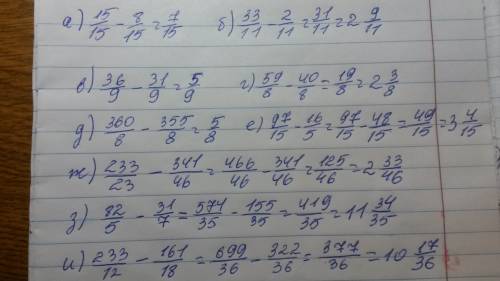 а) 15/15 - 8/15 = 7/15 б) 33/11 - 2/11 = 31/11 = 2 9/11
в) 36/9 - 31/9 = 5/9 г) 59/8 - 40/8 = 19/8 = 2 3/8
д) 360/8 - 355/8 = 5/8 е) 97/15 - 16/5 = 97/15 - 48/15 = 49/15 = 3 4/15
ж) 233/23 - 341/46 = 466/46 - 341/46 = 125/46 = 2 33/46
з) 82/5 - 31/7 = 574/35 - 155/35 = 419/35 = 11 34/35
и) 233/12 - 161/18 = 699/36 - 322/36 = 377/36 = 10 17/36